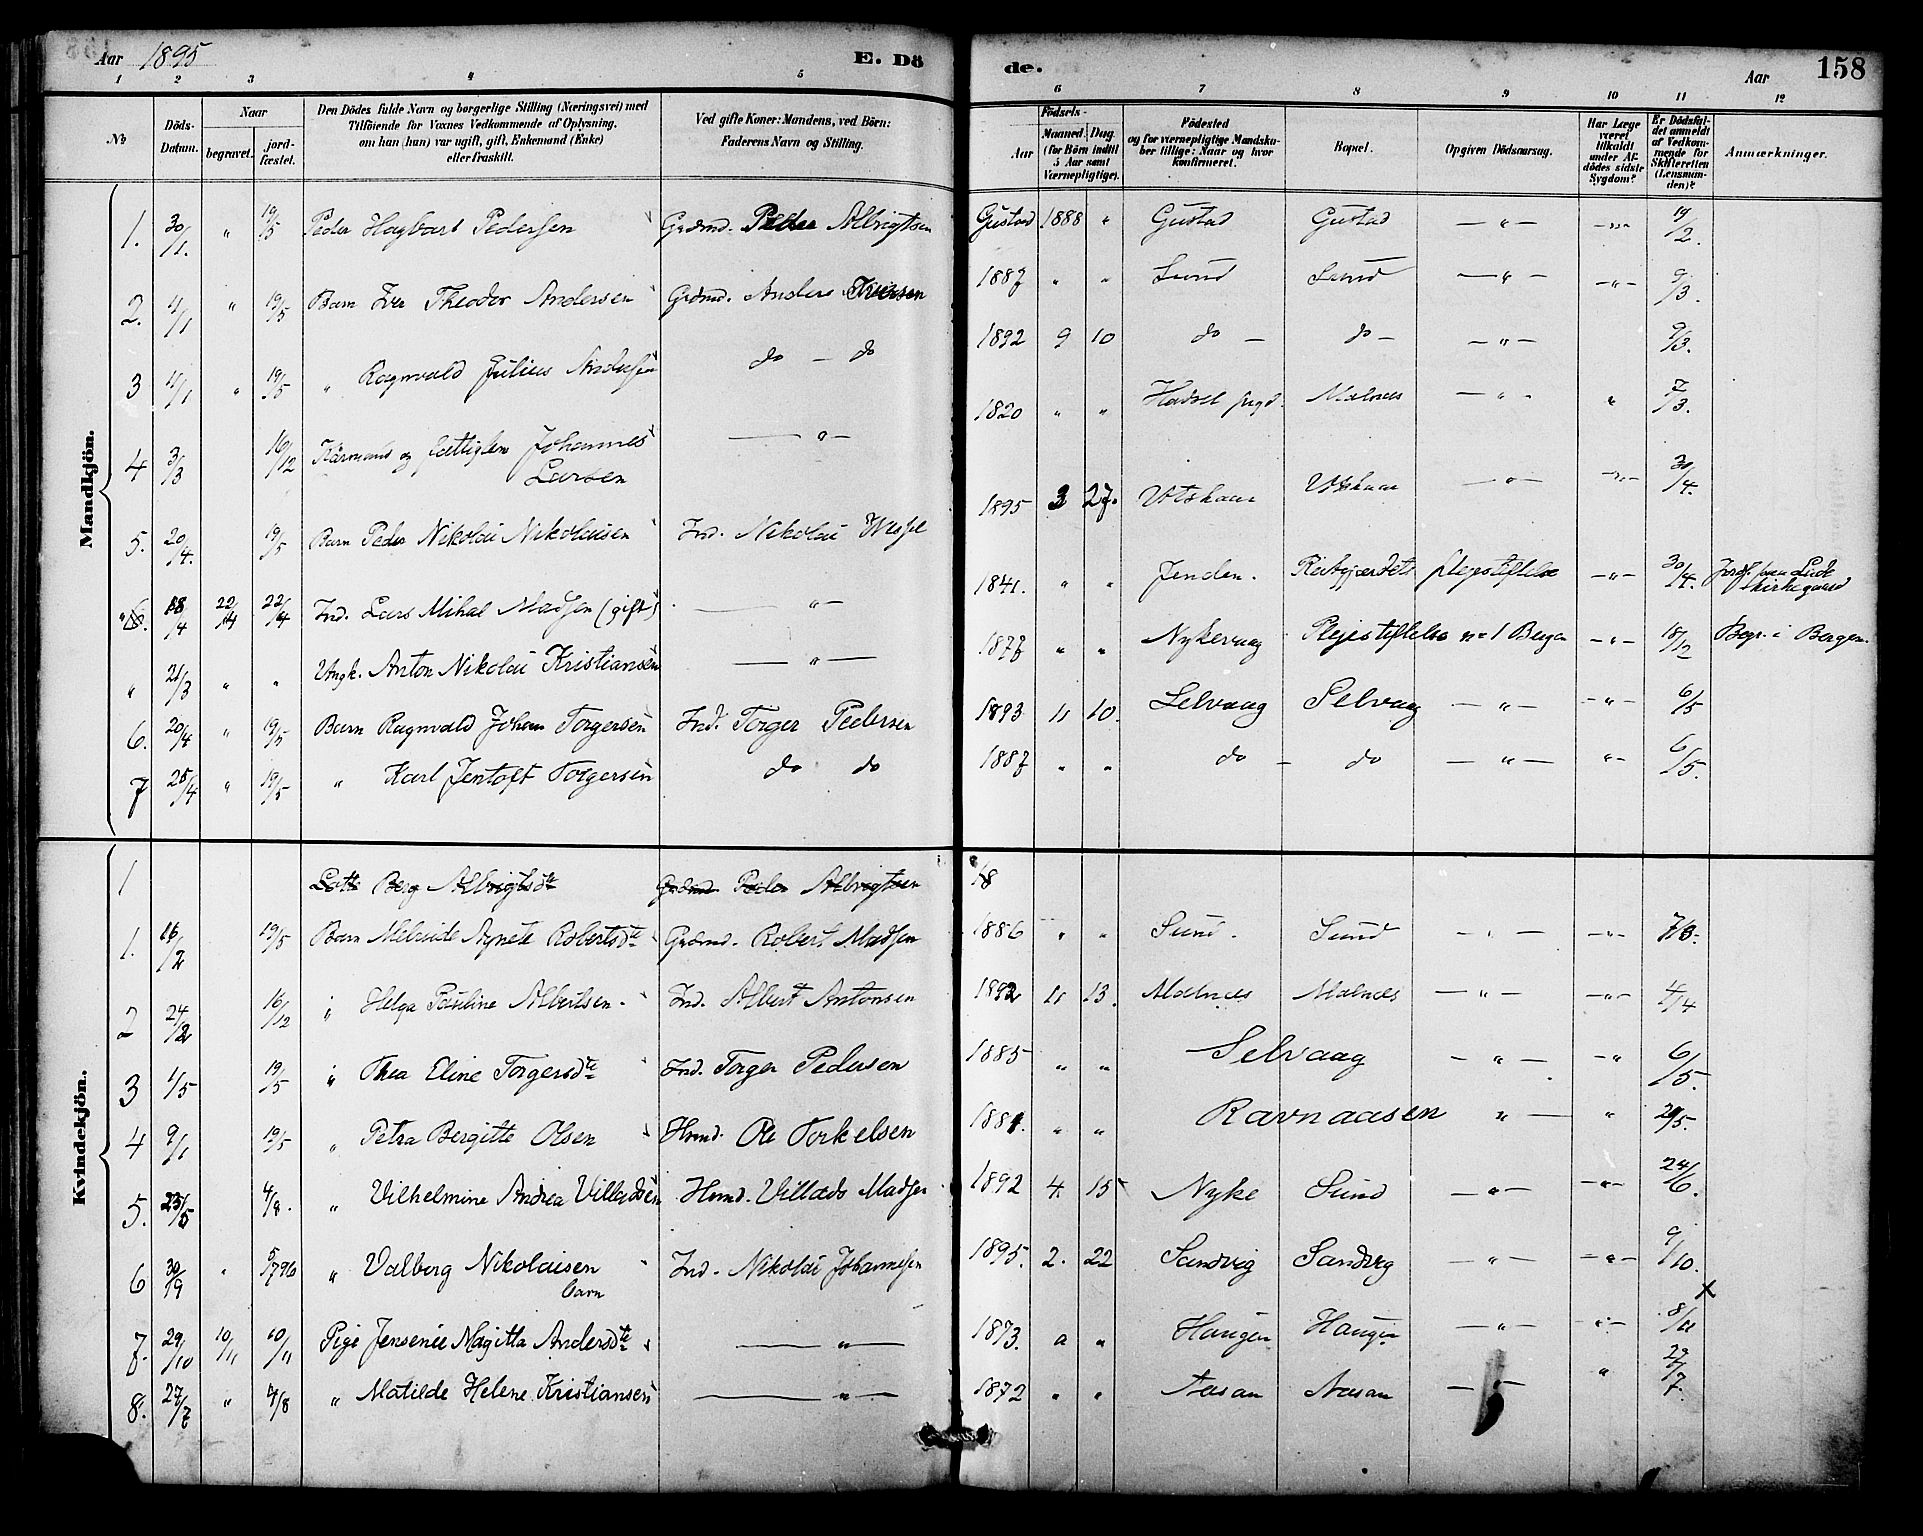 Aar 1895 E. Dö de. Aar 158
1 2 3 4 5 6 7 8 9 10 11 12
No Döds-Datum. Naar begravet. jord-fæstet. Den Dödes fulde Navn og borgerlige Stilling (Næringsvei) med Tilföiende for Voxnes Vedkommende af Oplysning. om han (hun) var ugift, gift, Enkemand (Enke) eller fraskilt. Ved gifte Koner: Mandens, ved Börn: Faderens Navn og Stilling. Födsels- Aar Maaned. Dag. (for Börn indtil 5 Aar samt Værnepligtige). Födested og for værnepligtige Mandskaber tillige: Naar og hvor konfirmeret. Bopæl. Opgiven Dödsaarsag. Har Læge været tilkaldt under Afdödes sidste Sygdom? Er Dödsfaldet anmeldt af Vedkommende for Skifteretten (Lensmanden)? Anmærkninger.
Mandkjön.
1. 30/1. " 19/5 Peder Hagbart Pedersen Grdmd. Peder Albrigtsen Gustad 1888 " Gustad Gustad — " — — " — 19/2.
2. 4/1 " 19/5 Barn Iver Theodor Andersen Grdmd. Anders Iversen 1887 " " Sund Sund — " — — " — 9/3.
3 11/1 " 19/5 " Ragnvald Julius Andersen do — do 1892 9 10 do — do — — " — 9/3.
4 3/3 16/12 Kårmand og fattiglem Johannes Larsen — " — 1820 " " Hadsel prgd. Malnes — " - " 7/3.
5. 20/4. 19/5 Barn Peder Nikolai Nikolaisen Ind. Nikolai Wessel 1895 3 27. Utskaar Utskaar — " — — " — 30/4.
"6. 18/4 22/4 22/4 Ind. Lars Mihal Madsen (gift) — " — 1841. " " Jenden. Reitgjærdets plejestiftelse — " — 30/4. Jordf. paa Lade kirkegaard
" 21/3 " " Ungk. Anton Nikolai Kristiansen — " — 1877 " " Nykevaag Plejestiftelse no 1 Bergen — " — 18/12 Begr. i Bergen.
6. 20/4 " 19/5 Barn Ragnvald Johan Torgersen Ind. Torger Pedersen 1893 11 10. Selvaag Selvaag — " — — " — 6/5
7 25/4 " 19/5 " Karl Jentoft Torgersen do do 1887 " " do — do — " — " — 6/5.
Kvindekjön.
1 Lotte Berg Albrigtsdtr Grdmd Peder Albrigtsen 18
1. 16/2 19/5 Barn Melvide Agnete Robertsdtr Grdmd. Robert Madsen 1886 " " Sund. Sund — " — — " — 7/3.
2 24/2 16/12 " Helga Pauline Albertsen. Ind. Albert Antonsen 1892 11 13. Malnes Malnes — " — — " — 4/4
3 1/5 19/5 " Thea Eline Torgersdtr Ind. Torger Pedersen 1885 " " Selvaag — " — — " 6/5.
4 9/1 19/5 " Petra Bergitte Olsen Hmd. Ole Torkelsen 1881. " " Ravnaasen " — " 29/5.
5. 23/5 4/8. " Vilhelmine Andrea Villadsen Hmd. Villads Madsen 1892 4. 15 Nyke Sund — " — — " — 24/6.
6 30/9 " 5/7 96 " Valborg Nikolaisen barn Ind. Nikolai Johannesen 1895. 2. 22 Sandvig Sandvig — " — — " — 9/10.
7. 29/10 10/11 10/11 Pige Jensenie Magitta Andersdtr — " — 1873. " " Haugen Haugen — " — — " — 8/11
8. 27/7 " 4/8 " Matilde Helene Kristiansen — " — 1872 " " Aasan Aasan — " — " 29/7.